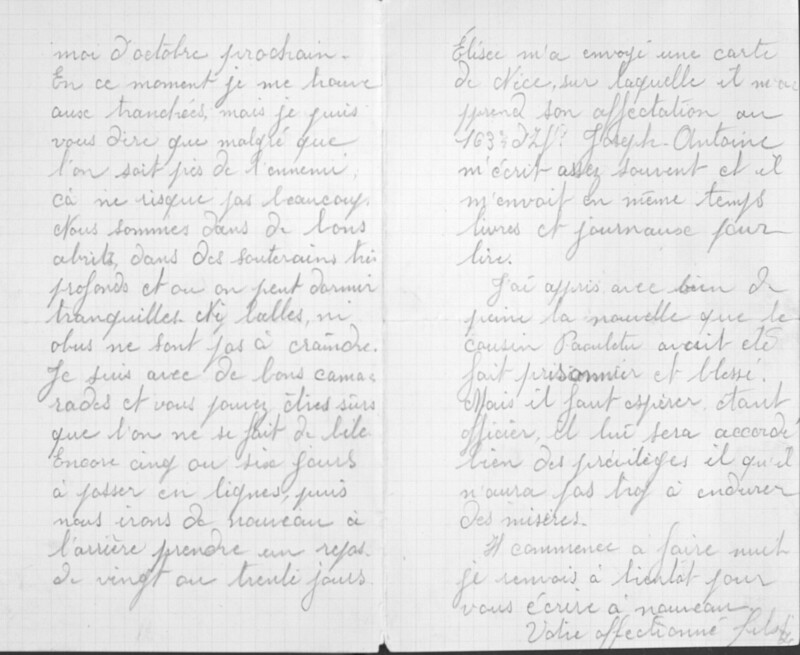 moi d'octobre prochain.
En ce moment je me trouve
aux tranchées, mais je puis
vous dire que malgré que
l'on soit près de l'ennemi,
çà ne risque pas beaucoup.
Nous sommes dans de bons
abrits, dans des souterains très
profonds et ou on peut dormir
tranquilles. Ni balles, ni
obus ne sont pas à craindre.
Je suis avec de bons cama-
rades et vous pouvez êtres sûrs
que l'on ne se fait de bile.
Encore cinq ou six jours
à passer en lignes, puis
nous irons de nouveau à
l'arrière prendre un repos
de vingt ou trente jours.
Élisée m'a envoyé une carte
de Nice, sur laquelle il m'a
pprend son affectation au
163e d'If. Joseph-Antoine
m'écrit assez souvent et il
m'envoit en même temps
livres et journaux pour
lire.
J'ai appris avec bien de
peine la nouvelle que le
cousin avait eté
fait prisonnier et blessé.
Mais il faut espérer, etant
officier, il lui sera accordé
bien des privilèges il qu'il
n'aura pas trop à endurer
des misères.
Il commence à faire nuit
je renvois à bientôt pour
vous écrire à nouveau
Votre affectionné fils